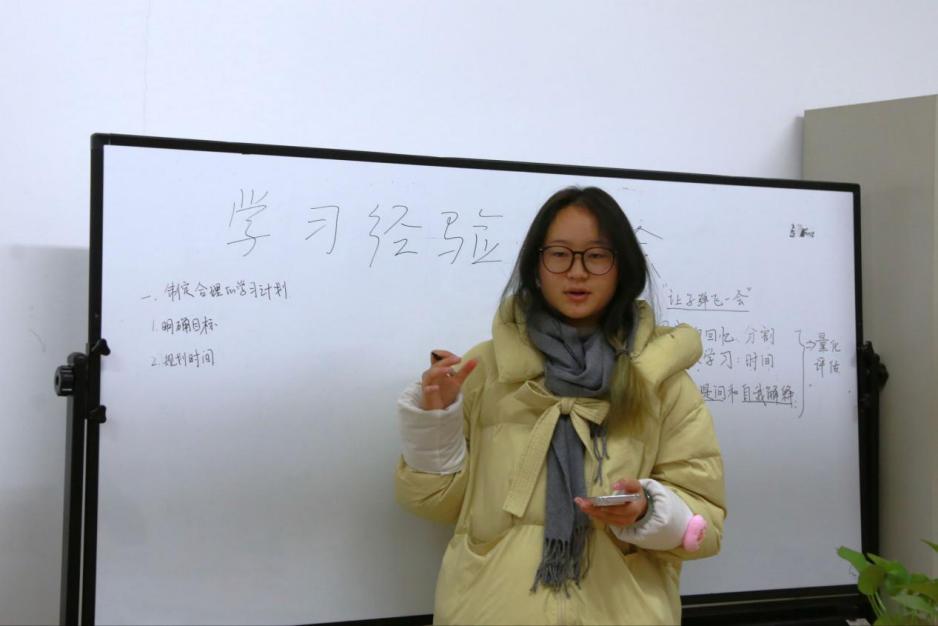 学习经验 会
一、制定合理的学习计划
1.明确目标
2.规划时间
"让子弹飞一会"
回忆、分割
学习:时间
提问和自我解释
⇒量化
评估